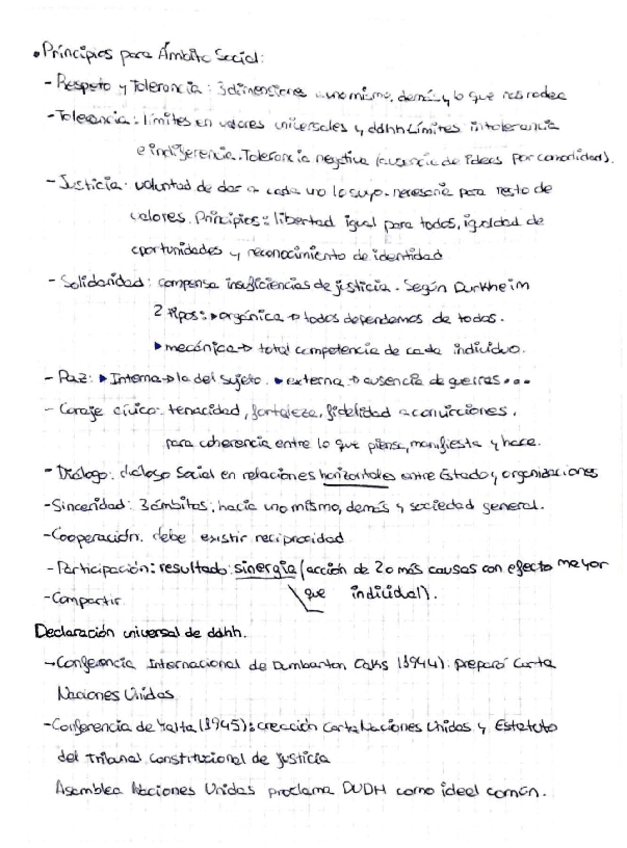 • Principios para Ámbito Social:
- Respeto y Tolerancia: 3 dimensiones uno mismo, demás y lo que nos rodea
- Tolerancia: límites en valores universales y ddhh Límites intolerancia
e indiferencia. Tolerancia negativa (ausencia de ideas por comodidad).
- Justicia: voluntad de dar a cada uno lo suyo. necesaria para resto de
valores. Principios: libertad igual para todos, igualdad de
oportunidades y reconocimiento de identidad
- Solidaridad: compensa insuficiencias de justicia. Según Durkheim
2 tipos: ▸ orgánica → todos dependemos de todos.
▸ mecánica → total competencia de cada individuo.
- Paz: ▸ Interna → la del sujeto. ▸ externa → ausencia de guerras...
- Coraje cívico: tenacidad, fortaleza, fidelidad a convicciones,
para coherencia entre lo que piensa, manifiesta y hace.
- Diálogo: dialogo Social en relaciones horizontales entre Estado y organizaciones
- Sinceridad: 3 ámbitos: hacia uno mismo, demás y sociedad general.
- Cooperación. debe existir reciprocidad
- Participación: resultado: sinergia (acción de 2 o más causas con efecto mayor
que individual).
- Compartir
Declaración universal de ddhh.
→ Conferencia Internacional de Dumbarton Oaks (1944): preparó Carta
Naciones Unidas
- Conferencia de Yalta (1945): creación Carta Naciones Unidas y Estatuto
del Tribunal Constitucional de Justicia
Asamblea Naciones Unidas proclama DUDH como ideal común.